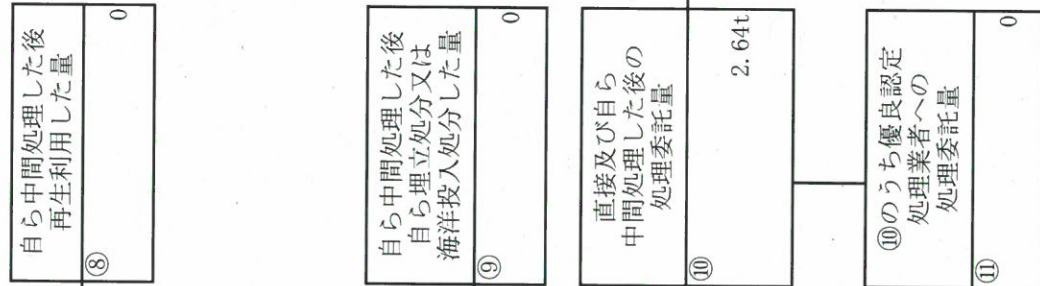 自ら中間処理した後
再生利用した量
⑧
0
自ら中間処理した後
自ら埋立処分又は
海洋投入処分した量
⑨
0
直接及び自ら
中間処理した後の
処理委託量
⑩
2.64t
⑩のうち優良認定
処理業者への
処理委託量
⑪
0